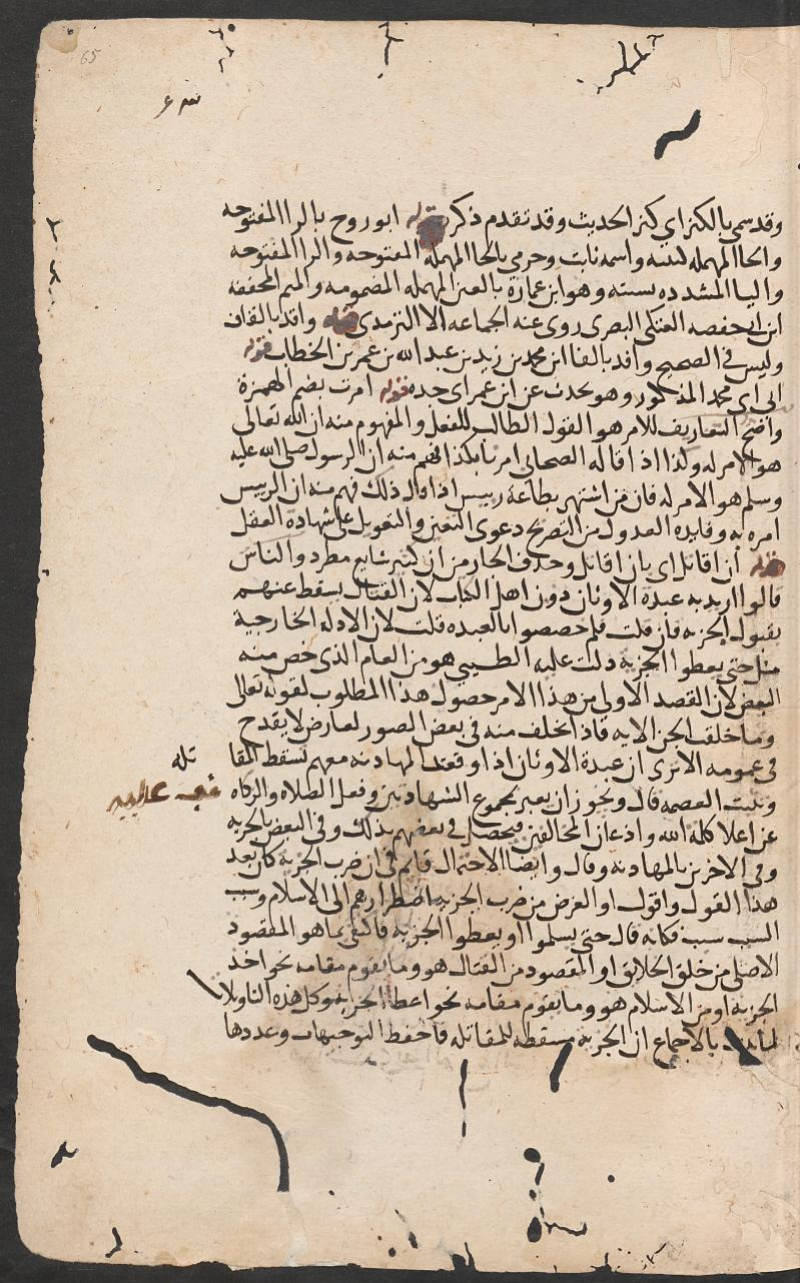 وقد سمي بالكنز اي كنز الحديث وقد تقدم ذكره قوله ابو روح بالرا المفتوحه
والحا المهمله كنيته واسمه ثابت وحرمي بالحا المهمله المفتوحه والرا المفتوحه
واليا المشدده نسبته وهو ابن عمارة بالعين المهمله المضمومه والميم المخففه
ابن ابي حفصه العتكى البصرى روى عنه الجماعه الا الترمذى قوله واقد بالقاف
وليس فى الصحيح وافد بالفا ابن محمد بن زيد بن عبد الله بن عمر بن الخطاب قوله
ابي اي محمد المذكور وهو يحدث عن ابن عمر اى جده قوله امرت بضم الهمزة
واصح التعاريف للامر هو القول الطالب للفعل والمفهوم منه ان الله تعالى
هو الامر له وكذا اذا قاله الصحابي امرنا بكذا فهم منه ان الرسول صلى الله عليه
وسلم هو الامر له فان من اشتهر بطاعة رييس اذا قال ذلك فهم منه ان الرييس
امره به وفايدة العدول من التصريح دعوى التعين والتعويل على شهادة العقل
قوله ان اقاتل اى بان اقاتل وحذف الجار من ان كثير شايع مطرد والناس
قالوا اريد به عبدة الاوثان دون اهل الكتاب لان القتال يسقط عنهم
بقبول الجزيه فان قلت فلم خصصوا بالعبده قلت لان الادله الخارجية
مثل حتى يعطوا الجزيه دلت عليه الطيبي هو من العام الذى خص منه
البعض لان القصد الاولي من هذا الامر حصول هذا المطلوب لقوله تعالى
وما خلقت الجن الايه فاذا تخلف منه في بعض الصور لعارض لا يقدح
فى عمومه الا ترى ان عبدة الاوثان اذا وقعت المهادنه معهم تسقط المقا
تله
وتثبت العصمه قال ويجوز ان يعبر بمجموع الشهادتين وفعل الصلاه والزكاه
عن اعلا كلمة الله واذعان المخالفين فيحصل في بعضهم بذلك وفى البعض بالجزيه
وفى الاخرين بالمهادنه وقال وايضا الاحتمال قايم فى ان ضرب الجزيه كان بعد
هذا القول واقول او الغرض من ضرب الجزيه اضطرارهم الى الاسلام وسبب
السبب سبب فكانه قال حتى يسلموا او يعطوا الجزيه فاكتفى بما هو المقصود
الاصلى من خلق الخلايق او المقصود من القتال هو وما يقوم مقامه نحو اخذ
الجزيه او من الاسلام هو وما يقوم مقامه نحو اعطا الجزيه وكل هذه التاويلات
لما ثبت بالاجماع ان الجزيه مسقطه للمقاتله فاحفظ التوجيهات وعددها